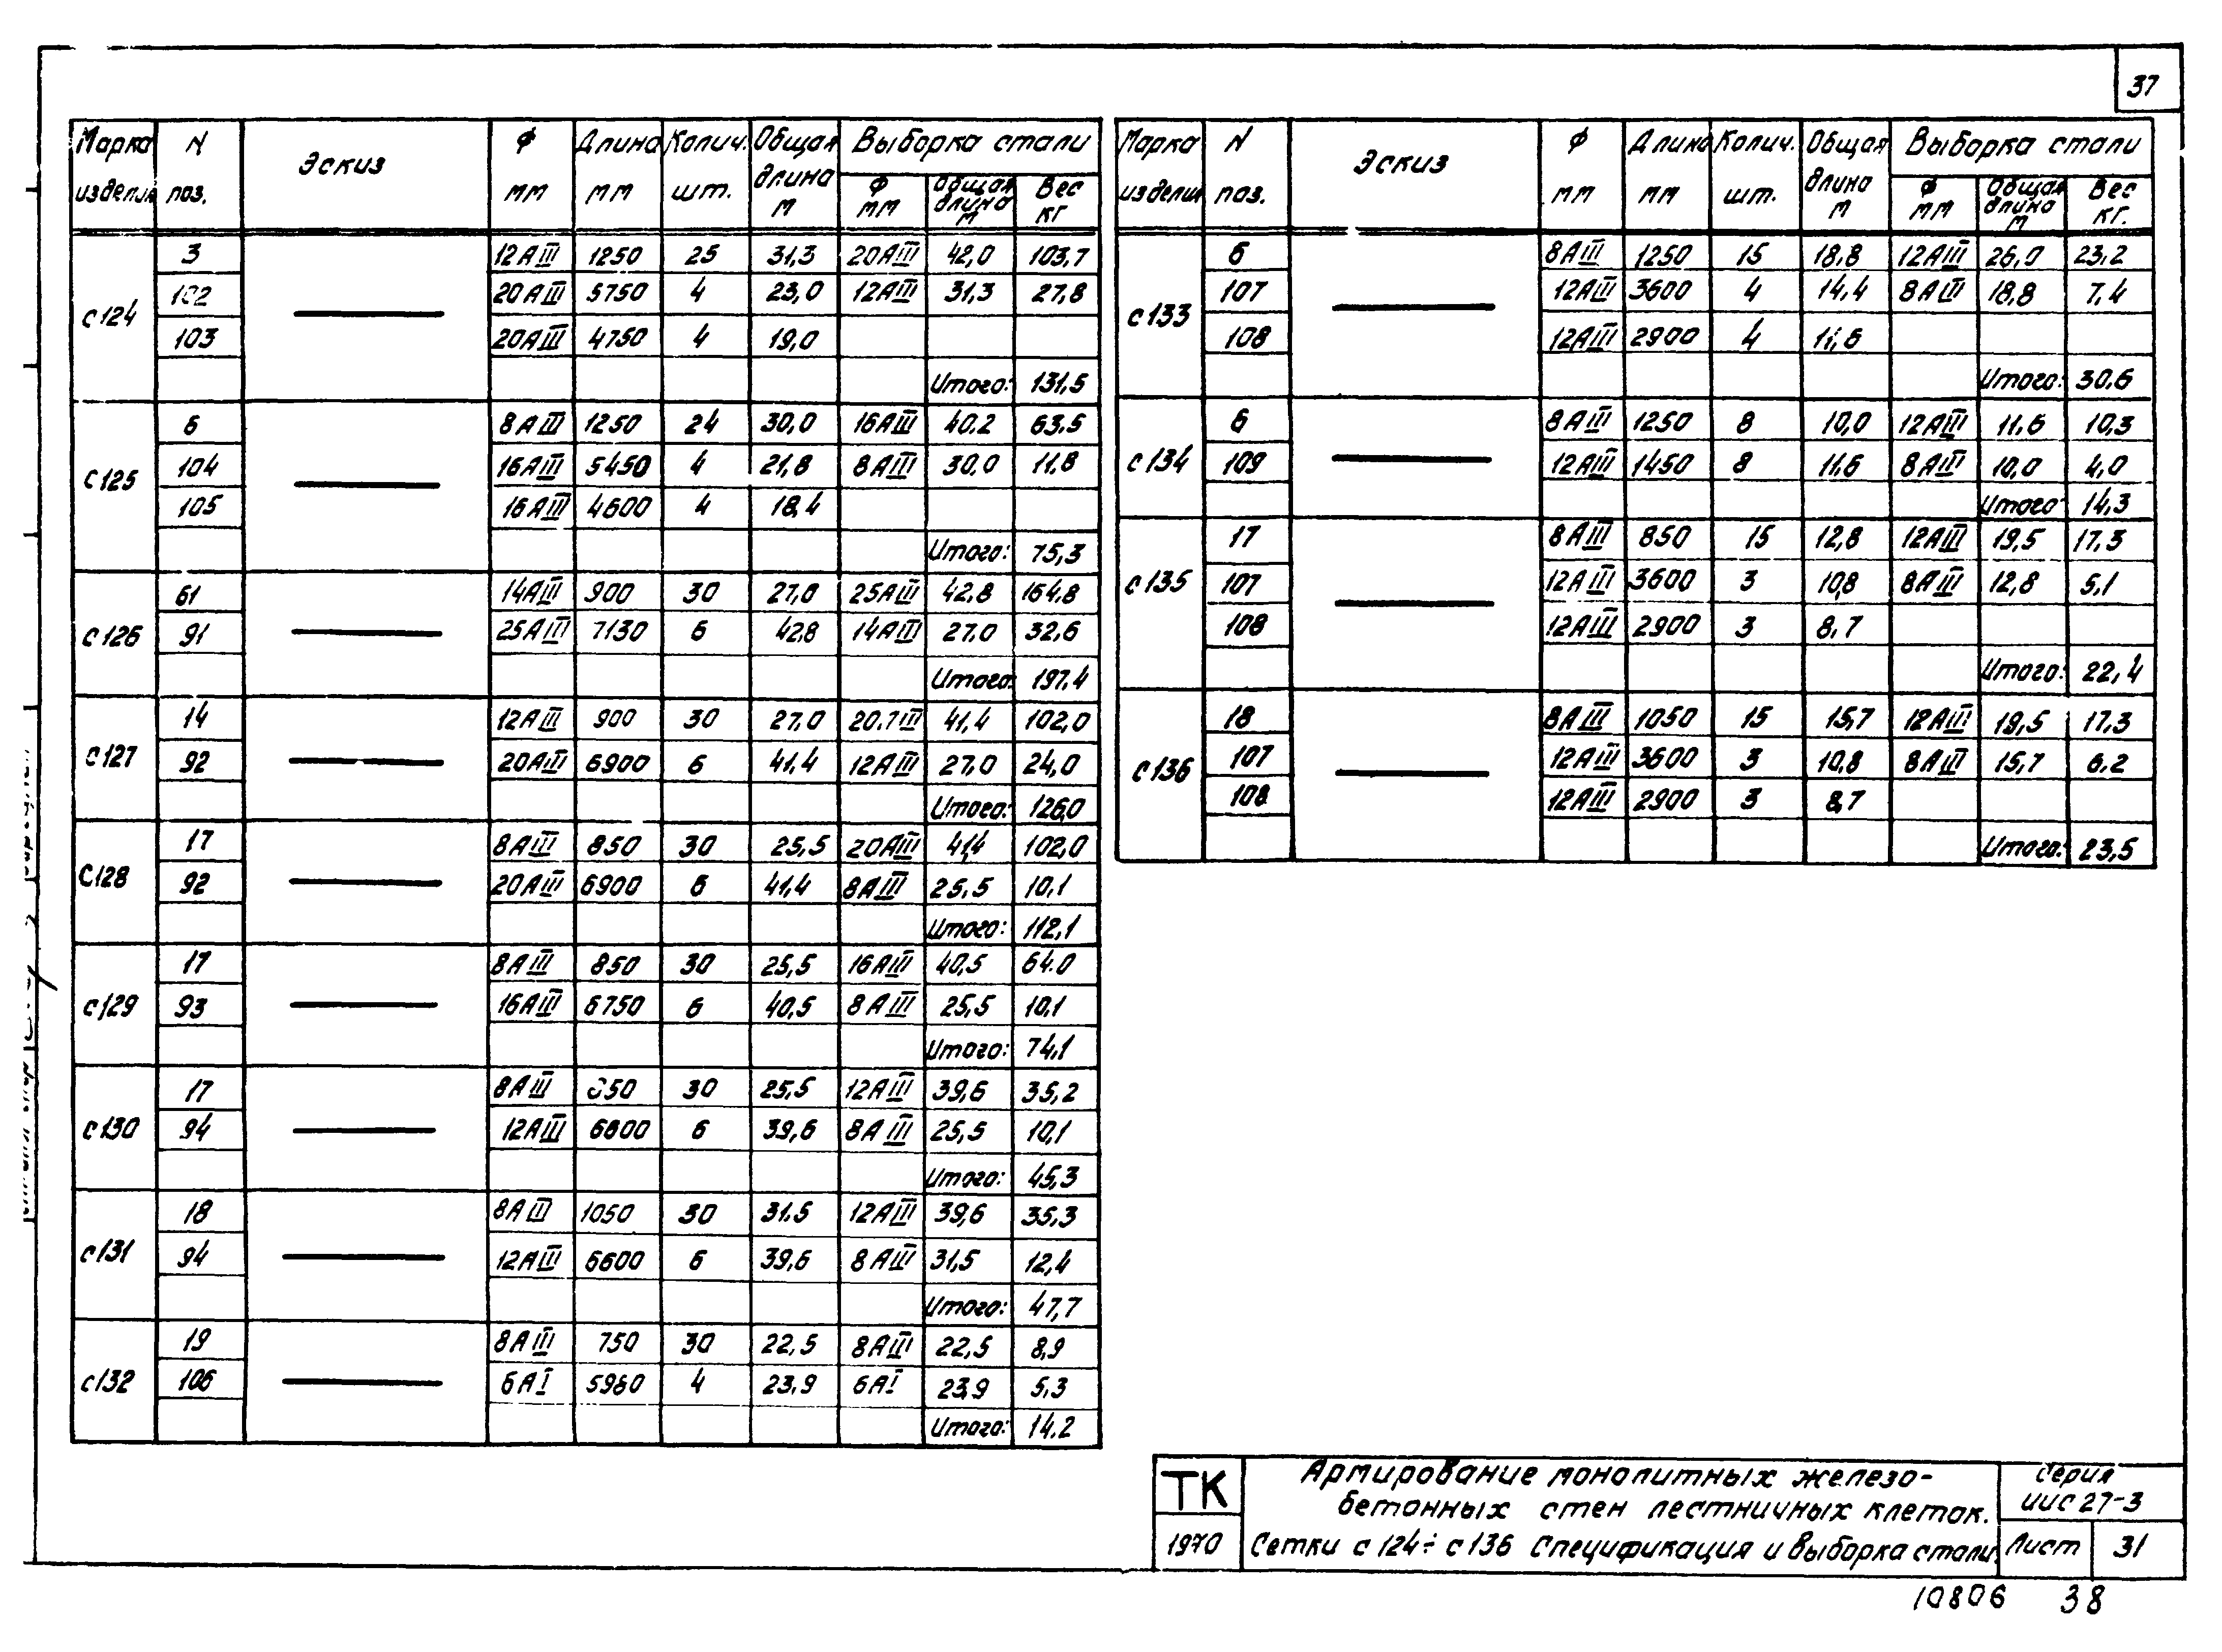 37
Марка изделия | N поз. | Эскиз | Ф мм | Длина мм | Колич. шт. | Общая длина м | Выборка стали: Ф мм | Общая длина м | Вес кг
с124
3 | 12АIII | 1250 | 25 | 31,3 | 20АIII | 42,0 | 103,7
102 | 20АIII | 5750 | 4 | 23,0 | 12АIII | 31,3 | 27,8
103 | 20АIII | 4750 | 4 | 19,0
Итого: 131,5
с125
6 | 8АIII | 1250 | 24 | 30,0 | 16АIII | 40.2 | 63.5
104 | 16АIII | 5450 | 4 | 21,8 | 8АIII | 30.0 | 11,8
105 | 16АIII | 4600 | 4 | 18,4
Итого: 75,3
с126
61 | 14АIII | 900 | 30 | 27,0 | 25АIII | 42,8 | 164,8
91 | 25АIII | 7130 | 6 | 42,8 | 14АIII | 27.0 | 32,6
Итого: 197.4
с127
14 | 12АIII | 900 | 30 | 27,0 | 20АIII | 41,4 | 102,0
92 | 20АIII | 6900 | 6 | 41,4 | 12АIII | 27,0 | 24,0
Итого: 126,0
С128
17 | 8АIII | 850 | 30 | 25,5 | 20АIII | 41,4 | 102,0
92 | 20АIII | 6900 | 6 | 41,4 | 8АIII | 25,5 | 10,1
Итого: 112,1
с129
17 | 8АIII | 850 | 30 | 25,5 | 16АIII | 40,5 | 64.0
93 | 16АIII | 6750 | 6 | 40,5 | 8АIII | 25,5 | 10,1
Итого: 74,1
с130
17 | 8АIII | 850 | 30 | 25,5 | 12АIII | 39,6 | 35,2
94 | 12АIII | 6600 | 6 | 39,6 | 8АIII | 25,5 | 10,1
Итого: 45,3
с131
18 | 8АIII | 1050 | 30 | 31.5 | 12АIII | 39,6 | 35,3
94 | 12АIII | 6600 | 6 | 39,6 | 8АIII | 31,5 | 12,4
Итого: 47,7
с132
19 | 8АIII | 750 | 30 | 22,5 | 8АIII | 22,5 | 8,9
106 | 6АI | 5980 | 4 | 23,9 | 6АI | 23,9 | 5,3
Итого: 14.2
Марка изделия | N поз. | Эскиз | Ф мм | Длина мм | Колич. шт. | Общая длина м | Выборка стали: Ф мм | Общая длина м | Вес кг.
с133
6 | 8АIII | 1250 | 15 | 18,8 | 12АIII | 26,0 | 23,2
107 | 12АIII | 3600 | 4 | 14,4 | 8АIII | 18,8 | 7,4
108 | 12АIII | 2900 | 4 | 11,6
Итого: 30.6
с134
6 | 8АIII | 1250 | 8 | 10,0 | 12АIII | 11,6 | 10,3
109 | 12АIII | 1450 | 8 | 11,6 | 8АIII | 10,0 | 4,0
Итого 14,3
с135
17 | 8АIII | 850 | 15 | 12,8 | 12АIII | 19,5 | 17.3
107 | 12АIII | 3600 | 3 | 10,8 | 8АIII | 12,8 | 5,1
108 | 12АIII | 2900 | 3 | 8,7
Итого: 22,4
с136
18 | 8АIII | 1050 | 15 | 15,7 | 12АIII | 19,5 | 17.3
107 | 12АIII | 3600 | 3 | 10,8 | 8АIII | 15,7 | 6.2
108 | 12АIII | 2900 | 3 | 8,7
Итого: 23,5
ТК
1970
Армирование монолитных железо-
бетонных стен лестничных клеток.
Сетки с 124÷с136 Спецификация и выборка стали.
Серия
ИИС 27-3
Лист 31
10806 38